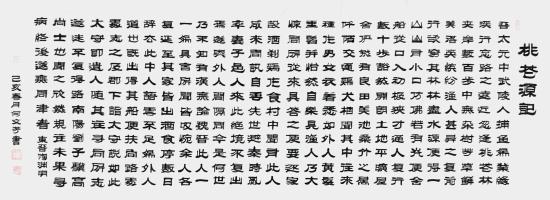 桃花源記
晉太元中武陵人捕魚為業緣
溪行忘路之遠近忽逢桃花林
夾岸數百步中無雜樹芳草鮮
美落英繽紛漁人甚異之復前
行欲窮其林林盡水源便得一
山山有小口仿佛若有光便捨
船從口入初極狹才通人復行
數十步豁然開朗土地平曠屋
舍儼然有良田美池桑竹之屬
阡陌交通雞犬相聞其中往來
種作男女衣著悉如外人黃髮
垂髫並怡然自樂見漁人乃大
驚問所從來具答之便要還家
設酒殺雞作食村中聞有此人
咸來問訊自云先世避秦時亂
率妻子邑人來此絕境不復出
焉遂與外人間隔問今是何世
乃不知有漢無論魏晉此人一
一為具言所聞皆歎惋餘人各
復延至其家皆出酒食停數日
辭去此中人語云不足為外人
道也既出得其船便扶向路處
處志之及郡下詣太守說如此
太守即遣人隨其往尋向所志
遂迷不復得路南陽劉子驥高
尚士也聞之欣然規往未果尋
病終後遂無問津者 東晉陶淵明
己亥春月何文芳書